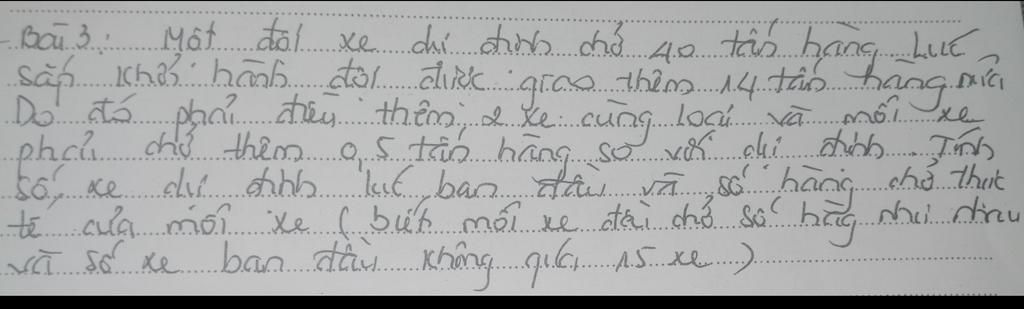 - Bài 3: Một đội xe dự định chở 40 tấn hàng. Lúc
sắp khởi hành đội được giao thêm 14 tấn hàng nữa
Do đó phải điều thêm, 2 xe cùng loại và mỗi xe
phải chở thêm 0,5 tấn hàng so với dự định. Tính
số xe dự định lúc ban đầu và số hàng chở thực
tế của mỗi xe (biết mỗi xe đều chở số hàng như nhau
và số xe ban đầu không quá 15 xe)